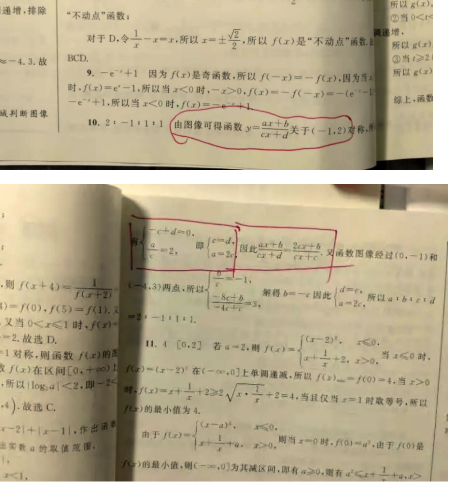 递增,排除
≈-4.3.故
域判断图像
“不动点”函数;
对于D,令1/x-x=x,所以x=±√2/2,所以f(x)是“不动点”函数.
BCD.
9. -e⁻ˣ+1 因为f(x)是奇函数,所以f(-x)=-f(x),因为当x
时,f(x)=eˣ-1,所以当x<0时,-x>0,f(x)=-f(-x)=-(e⁻ˣ-1
-e⁻ˣ+1,所以当x<0时,f(x)=-e⁻ˣ+1.
10. 2:-1:1:1 由图像可得函数y=(ax+b)/(cx+d)关于(-1,2)对称,
所以g(x)
②当0<
递增,
所以g(x)
③当t≥2
所以g(x)
综上,函数
则f(x+4)=1/f(x+2)
)=f(0),f(5)=f(1).
又当0<x≤1时,f(x)=
=2.故选D.
=1对称,则函数f(x)的图
数f(x)在区间[0,+∞)上
所以|log₂a|<2,即-2<
,4).故选C.
-2|+|x-1|,作出函
出实数a的取值范围.
x<1,
{-c+d=0, a/c=2, 即{c=d, a=2c, 因此(ax+b)/(cx+d)=(2cx+b)/(cx+c).又函数图像经过(0,-1)和
(-4,3)两点,所以{b/c=-1, (-8c+b)/(-4c+c)=3, 解得b=-c因此{d=c, a=2c, 所以a:b:c:d
=2:-1:1:1.
11. 4 [0,2] 若a=2,则f(x)={(x-2)², x≤0, x+1/x+2, x>0, 当x≤0时,
f(x)=(x-2)²在(-∞,0]上单调递减,所以f(x)min=f(0)=4,当x>0
时,f(x)=x+1/x+2≥2√(x·1/x)+2=4,当且仅当x=1时取等号,所以
f(x)的最小值为4.
由于f(x)={(x-a)², x≤0, x+1/x+a, x>0, 则当x=0时,f(0)=a²,由于f(0)是
f(x)的最小值,则(-∞,0]为其减区间,即有a≥0,则有a²≤x+1/x+a,x>